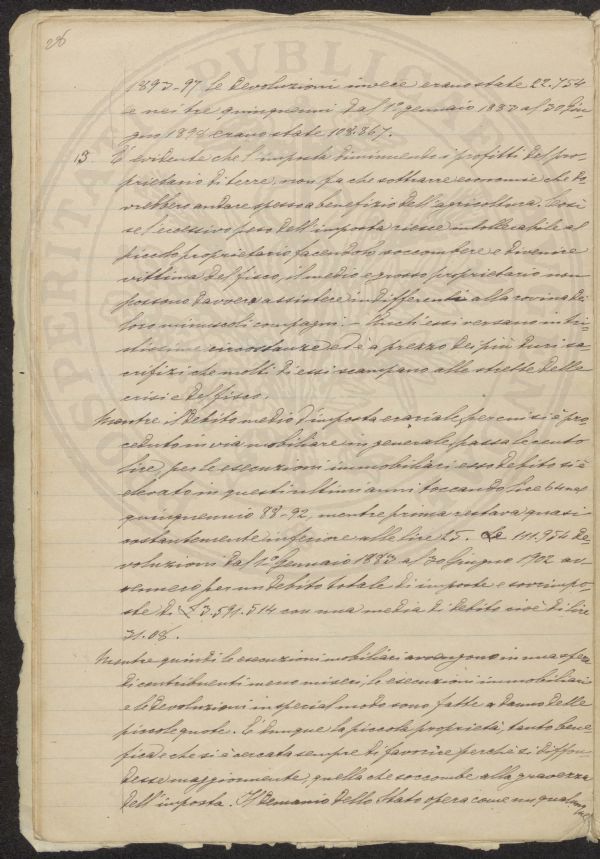 26
1893-97 le devoluzioni invece erano state 22.754
e nei tre quinquenni dal 1° gennaio 1883 al 30 Giu-
gno 1898 erano state 108.867.
13 È evidente che l'imposta diminuendo i profitti del pro-
prietario di terre, non fa che sottrarre economie che do-
vrebbero andare spesso a benefizio dell'agricoltura. Così
se l'eccessivo peso dell'imposta riesce intollerabile al
piccolo proprietario facendolo soccombere e divenire
vittima del fisco, il medio e grosso proprietario non
possono davvero assistere indifferenti alla rovina dei
loro minuscoli compagni. - Anch'essi versano in tri-
stissime circostanze ed è a prezzo dei più duri sa-
crifizi che molti di essi scampano alle strette della
crisi e del fisco.
Mentre il debito medio d'imposta erariale, per cui si è pro-
ceduto in via mobiliare in generale, passa le cento
lire, per le esecuzioni immobiliari esso debito si è
elevato in questi ultimi anni toccando lire 64 nel
quinquennio 88-92, mentre prima restava quasi
costantemente inferiore alle lire 25. Le 111.954 de-
voluzioni dal 1° Gennaio 1883 al 30 Giugno 1902 av-
vennero per un debito totale di imposte e sovrimpo-
ste di £ 3.591.514 con una media di debito cioè di lire
31.08.
Mentre quindi le esecuzioni mobiliari avvengono in una sfera
di contribuenti meno miseri, le esecuzioni immobiliari
e le devoluzioni in special modo sono fatte a danno delle
piccole quote. È dunque la piccola proprietà, tanto bene-
fica e che si è cercata sempre di favorire perchè si diffon-
desse maggiormente, quella che soccombe alla gravezza
dell'imposta. Il demanio dello Stato opera come un qualun